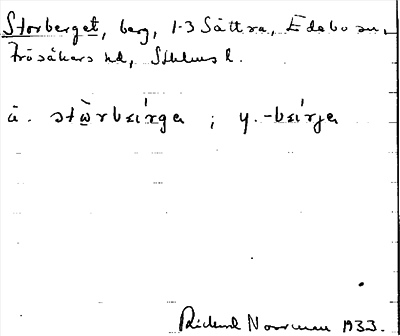 Storberget, berg, 1-3 Sättra, Edebo sn,
Frösåkers hd, Sthlms l.
ä. stὼrbɛírga ; y. -bɛírja
Rickard Norrman 1933.